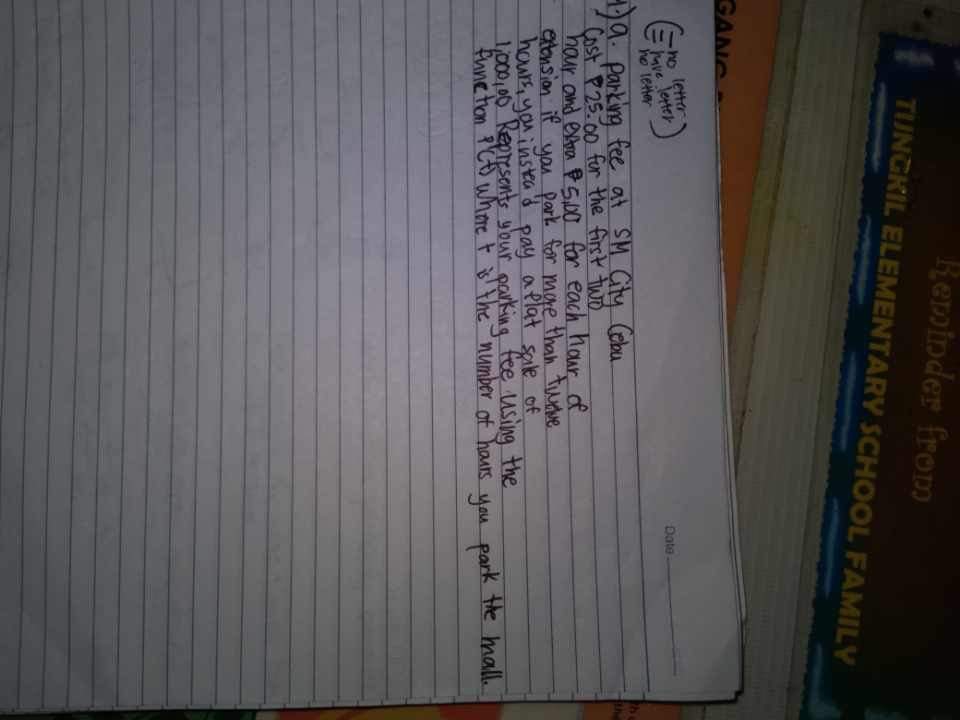 Reminder from
TUNGKIL ELEMENTARY SCHOOL FAMILY
GANG
Date
(= no letter
= have letter
no letter)
1.) a. Parking fee at SM City Cebu
Cost ₱25.00 for the first two
hour and extra ₱5.00 for each hour of
extension if you park for more than twelve
hours, you instead pay a flat of
1,000,00 Represents your parking fee using the
function P(t) where t is the number of hours you park the mall.